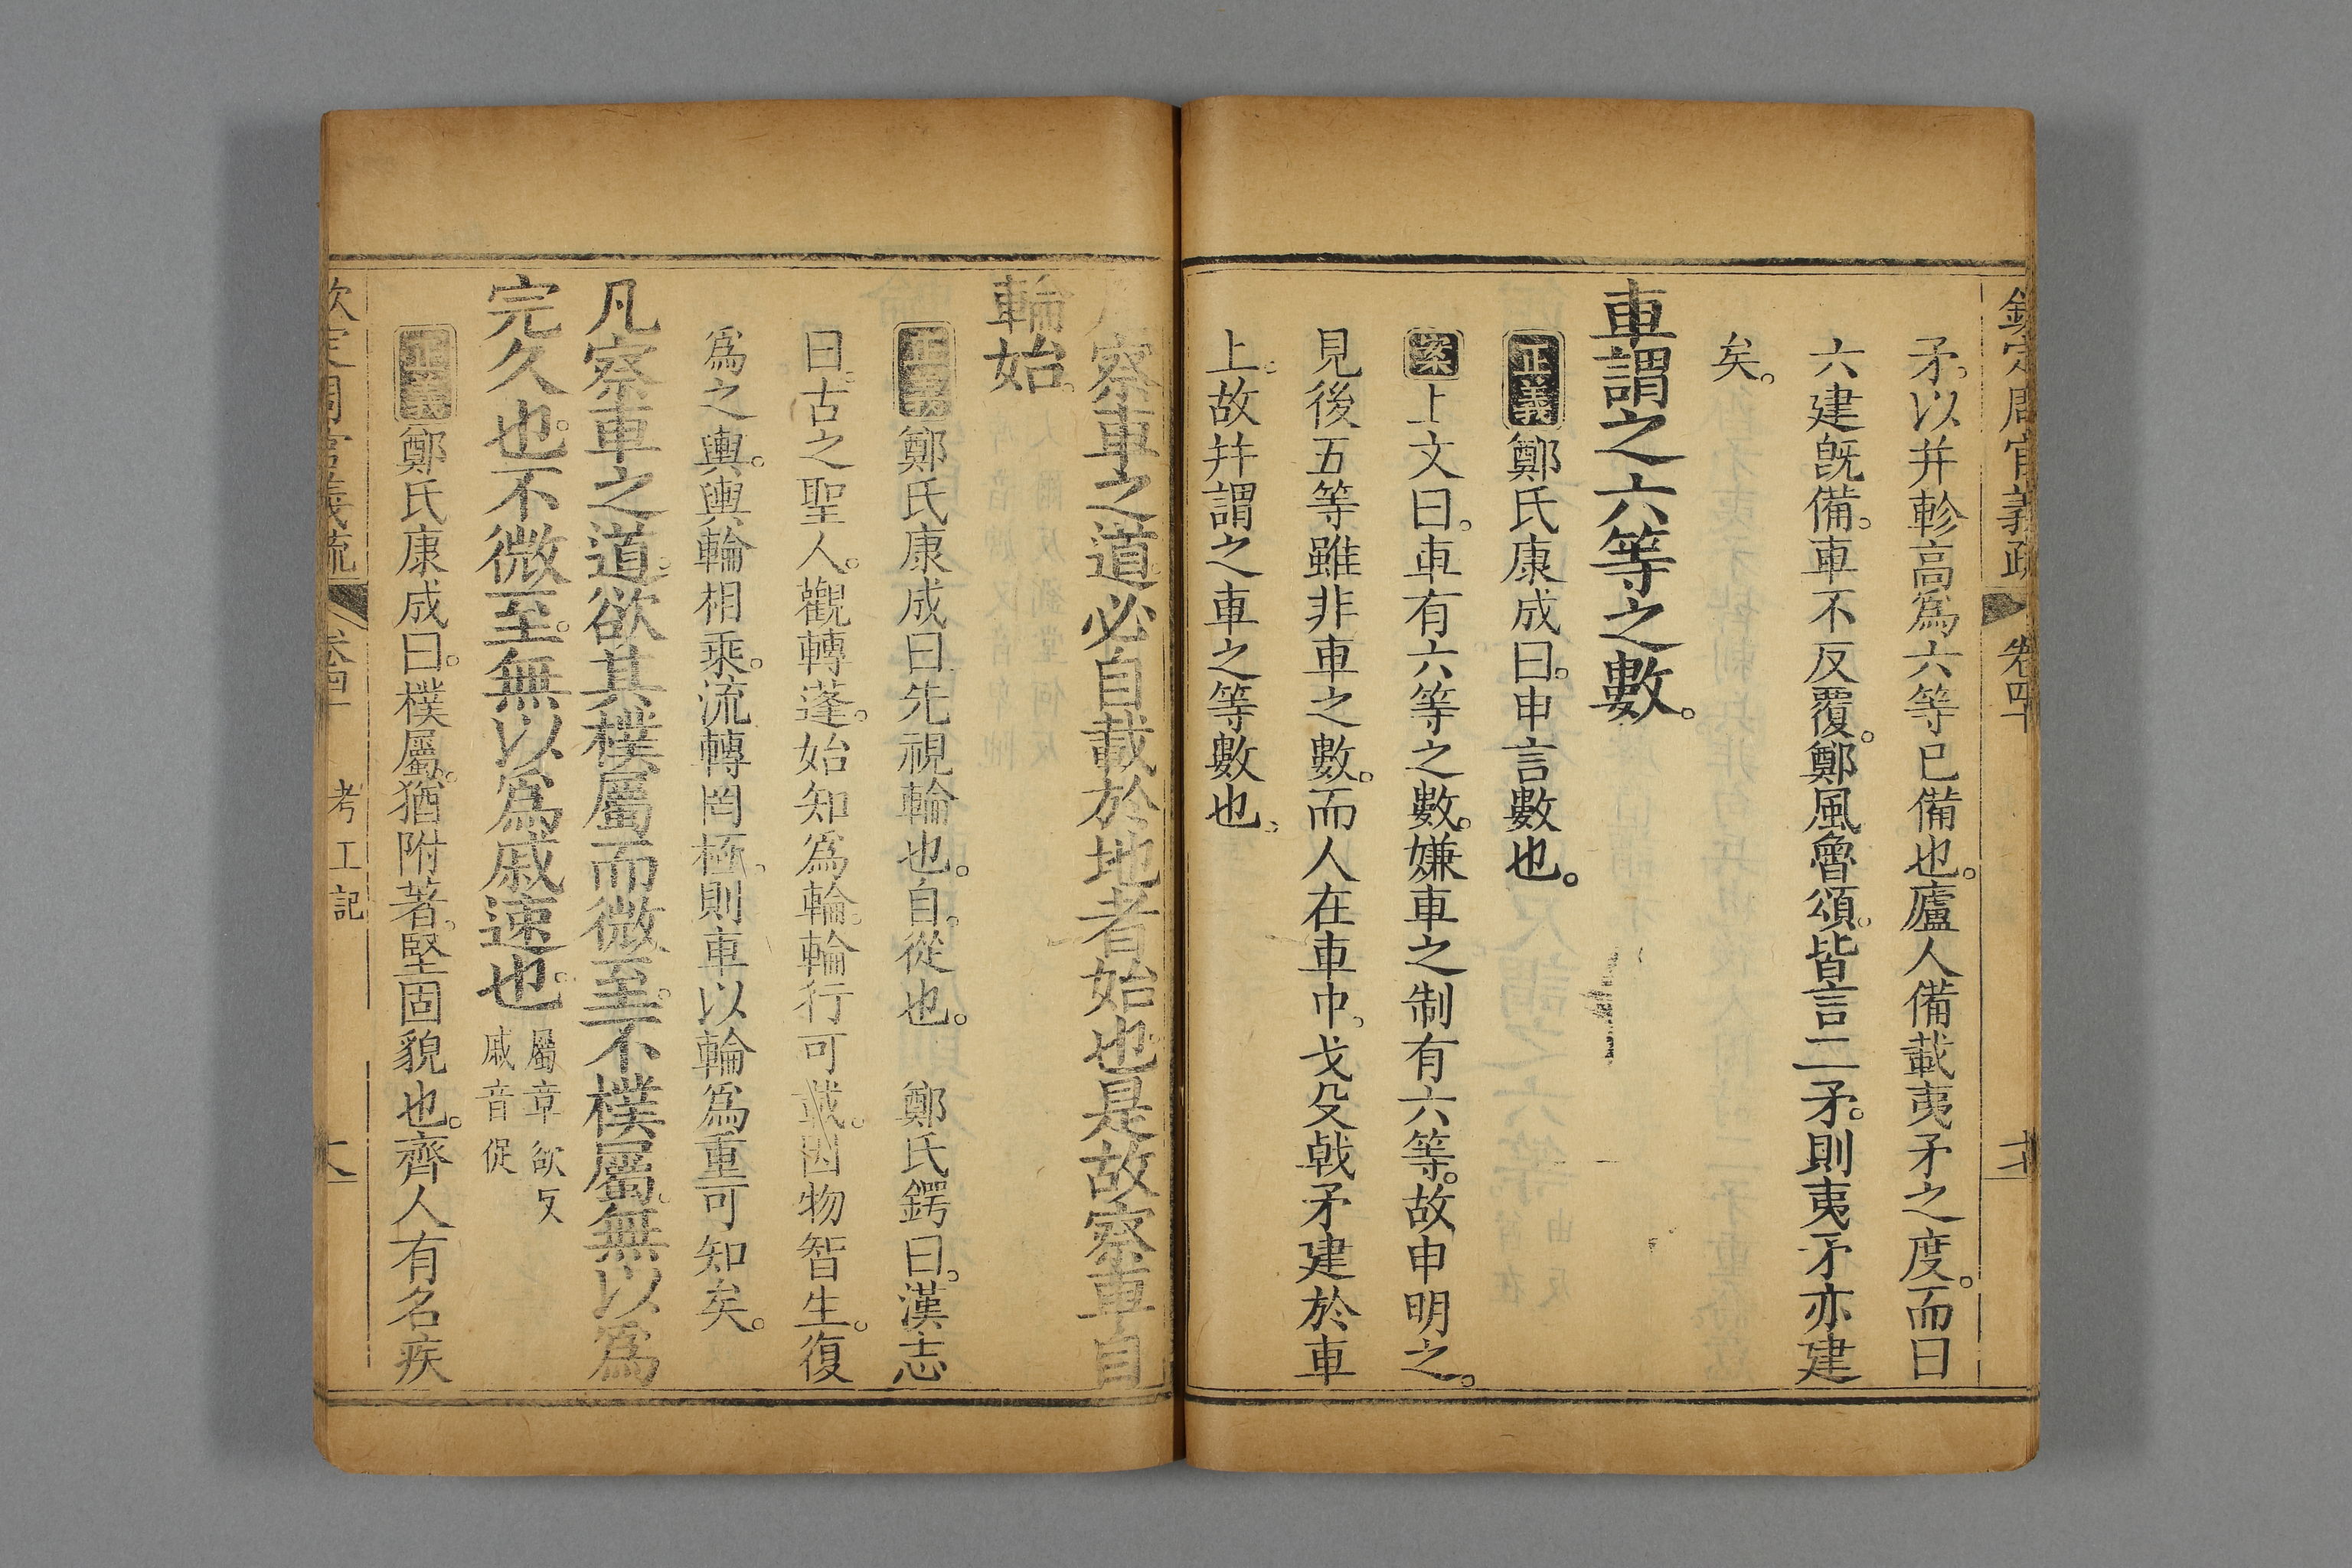 欽定周官義疏 卷四十
矛。以并軫高爲六等已備也。廬人備載夷矛之度。而曰
六建旣備。車不反覆。鄭風魯頌。皆言二矛。則夷矛亦建
矣。
車謂之六等之數。
正義鄭氏康成曰。申言數也。
案上文曰。車有六等之數。嫌車之制有六等。故申明之。
見後五等雖非車之數。而人在車中。戈殳戟矛建於車
上。故幷謂之車之等數也。
凡察車之道。必自載於地者始也。是故察車自
輪始。
正義鄭氏康成曰先視輪也。自。從也。 鄭氏鍔曰。漢志
曰。古之聖人。觀轉蓬。始知爲輪。輪行可載。因物智生。復
爲之輿。輿輪相乘。流轉罔極。則車以輪爲重可知矣。
凡察車之道。欲其樸屬而微至。不樸屬。無以爲
完久也。不微至。無以爲戚速也。屬章欲反
戚音促
正義鄭氏康成曰。樸屬。猶附著。堅固貌也。齊人有名疾
欽定周官義疏 卷四十 考工記